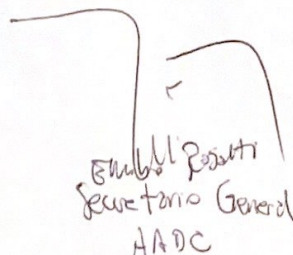 Rosatti
Secretario General
AADC